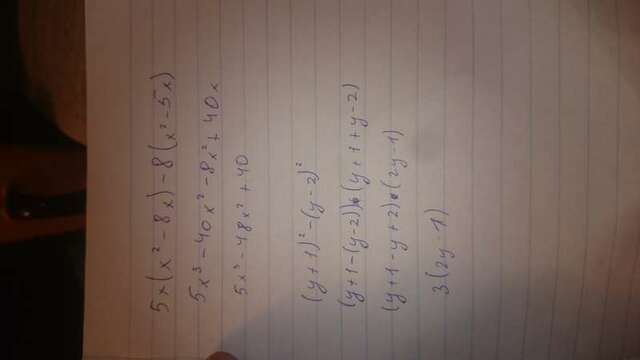 5x(x² - 8x) - 8(x² - 5x)
5x³ - 40x² - 8x² + 40x
5x³ - 48x² + 40
(y + 1)² - (y - 2)²
(y + 1 - (y - 2))•(y + 1 + y - 2)
(y + 1 - y + 2)•(2y - 1)
3(2y - 1)